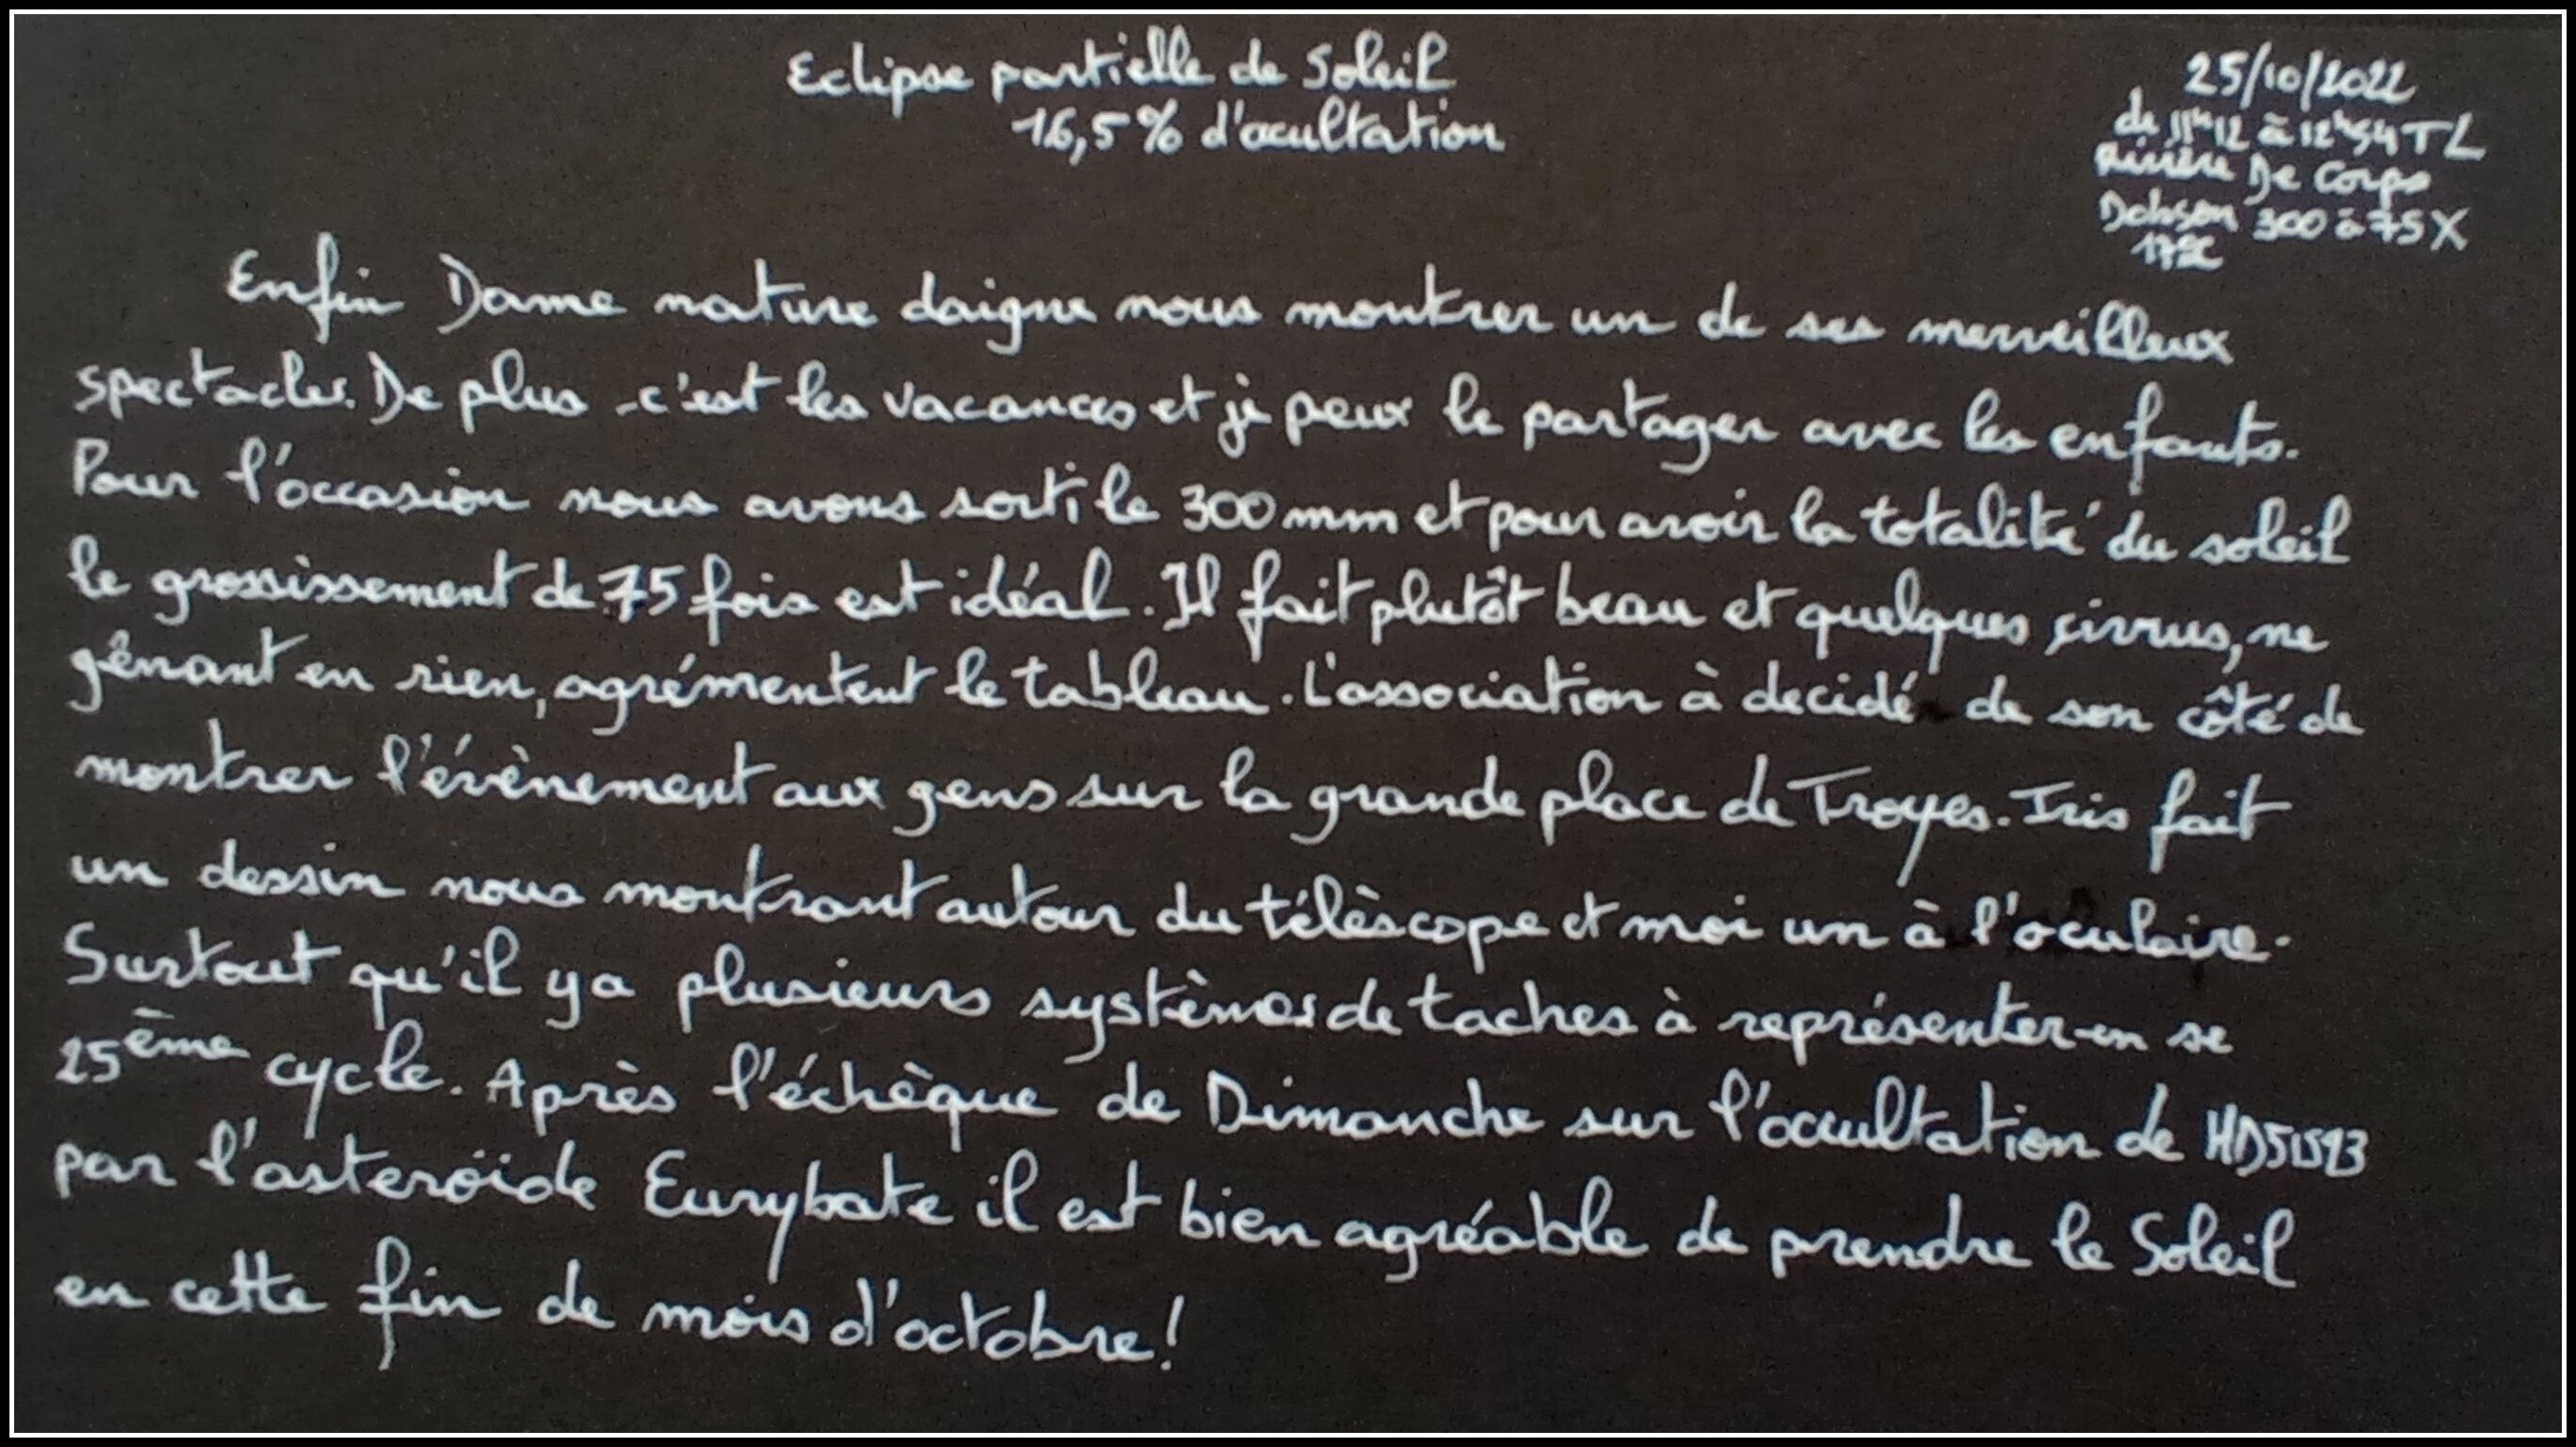 Eclipse partielle de Soleil
16,5% d'ocultation
25/10/2022
de 11h12 à 12h54 TL
Rivière De Corps
Dobson 300 à 75X
17°C
Enfin Dame nature daigne nous montrer un de ses merveilleux
spectacles. De plus c'est les vacances et je peux le partager avec les enfants.
Pour l'occasion nous avons sorti le 300 mm et pour avoir la totalité du soleil
le grossissement de 75 fois est idéal. Il fait plutôt beau et quelques çirrus, ne
gênant en rien, agrémentent le tableau. L'association à decidé de son côté de
montrer l'évènement aux gens sur la grande place de Troyes. Iris fait
un dessin nous montrant autour du télèscope et moi un à l'oculaire.
Surtout qu'il y a plusieurs systèmes de taches à représenter en se
25ème cycle. Après l'échèque de Dimanche sur l'occultation de
par l'asteroïde Eurybate il est bien agréable de prendre le Soleil
en cette fin de mois d'octobre!